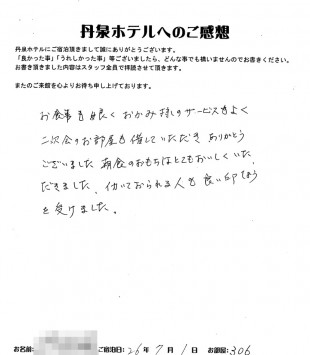 丹泉ホテルへのご感想
丹泉ホテルにご宿泊頂きまして誠にありがとうございます。
「良かった事」「うれしかった事」等ございましたら、どんな事でも構いませんのでお書きください。
お書き頂きました内容はスタッフ全員で拝読させて頂きます。
またのご来館を心よりお待ち申し上げております。
お食事も良く おかみ様のサービスもよく
二次会のお部屋も借していただき ありがとう
ございました 朝食のおもちはとてもおいしくいた
だきました、 働いておられる人も良い印しょう
を受けました。
お名前: ご宿泊日: 26年 7月 1日 お部屋: 306